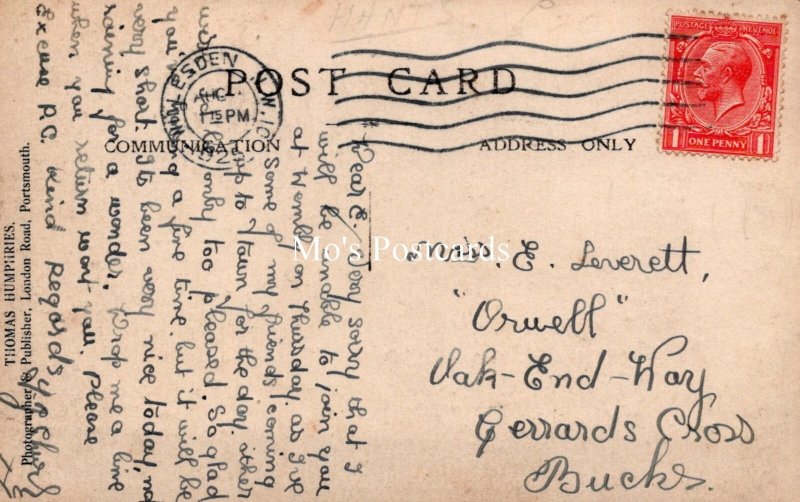 HANTS
POST CARD
COMMUNICATION
ADDRESS ONLY
POSTAGE REVENUE
1 1
ONE PENNY
WILLESDEN
N.W.10
AUG
PM
Dear E. Very sorry that I
will be unable to join you
at Wembley on Thursday as I've
some of my friends coming
up to town for the day other
only too pleased. So glad
you having a fine time but it will be
very short. Its been very nice today, no
raining for a wonder, Drop me a line
when you return wont you. Please
Excuse P.C. Kind Regards
THOMAS HUMPHRIES.
Photographer & Publisher, London Road, Portsmouth.
Mo's Postcards
E. Leverett,
"Orwell"
Oak-End-Way
Gerrards Cross
Bucks.